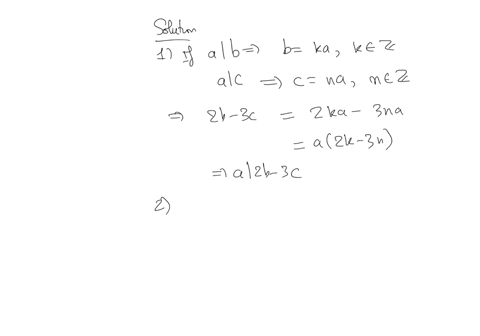 Solution
1) If a|b ⇒ b = ka, k∈ℤ
a|c ⇒ c = na, n∈ℤ
⇒ 2b-3c = 2ka - 3na
= a(2k-3n)
⇒ a|2b-3c
2)